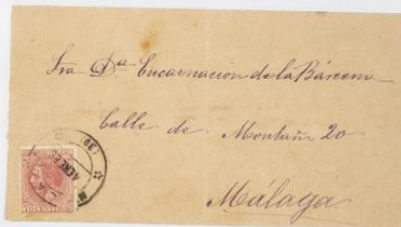 Sra Dª Encarnacion de la Bárcena
Calle de 20
Málaga